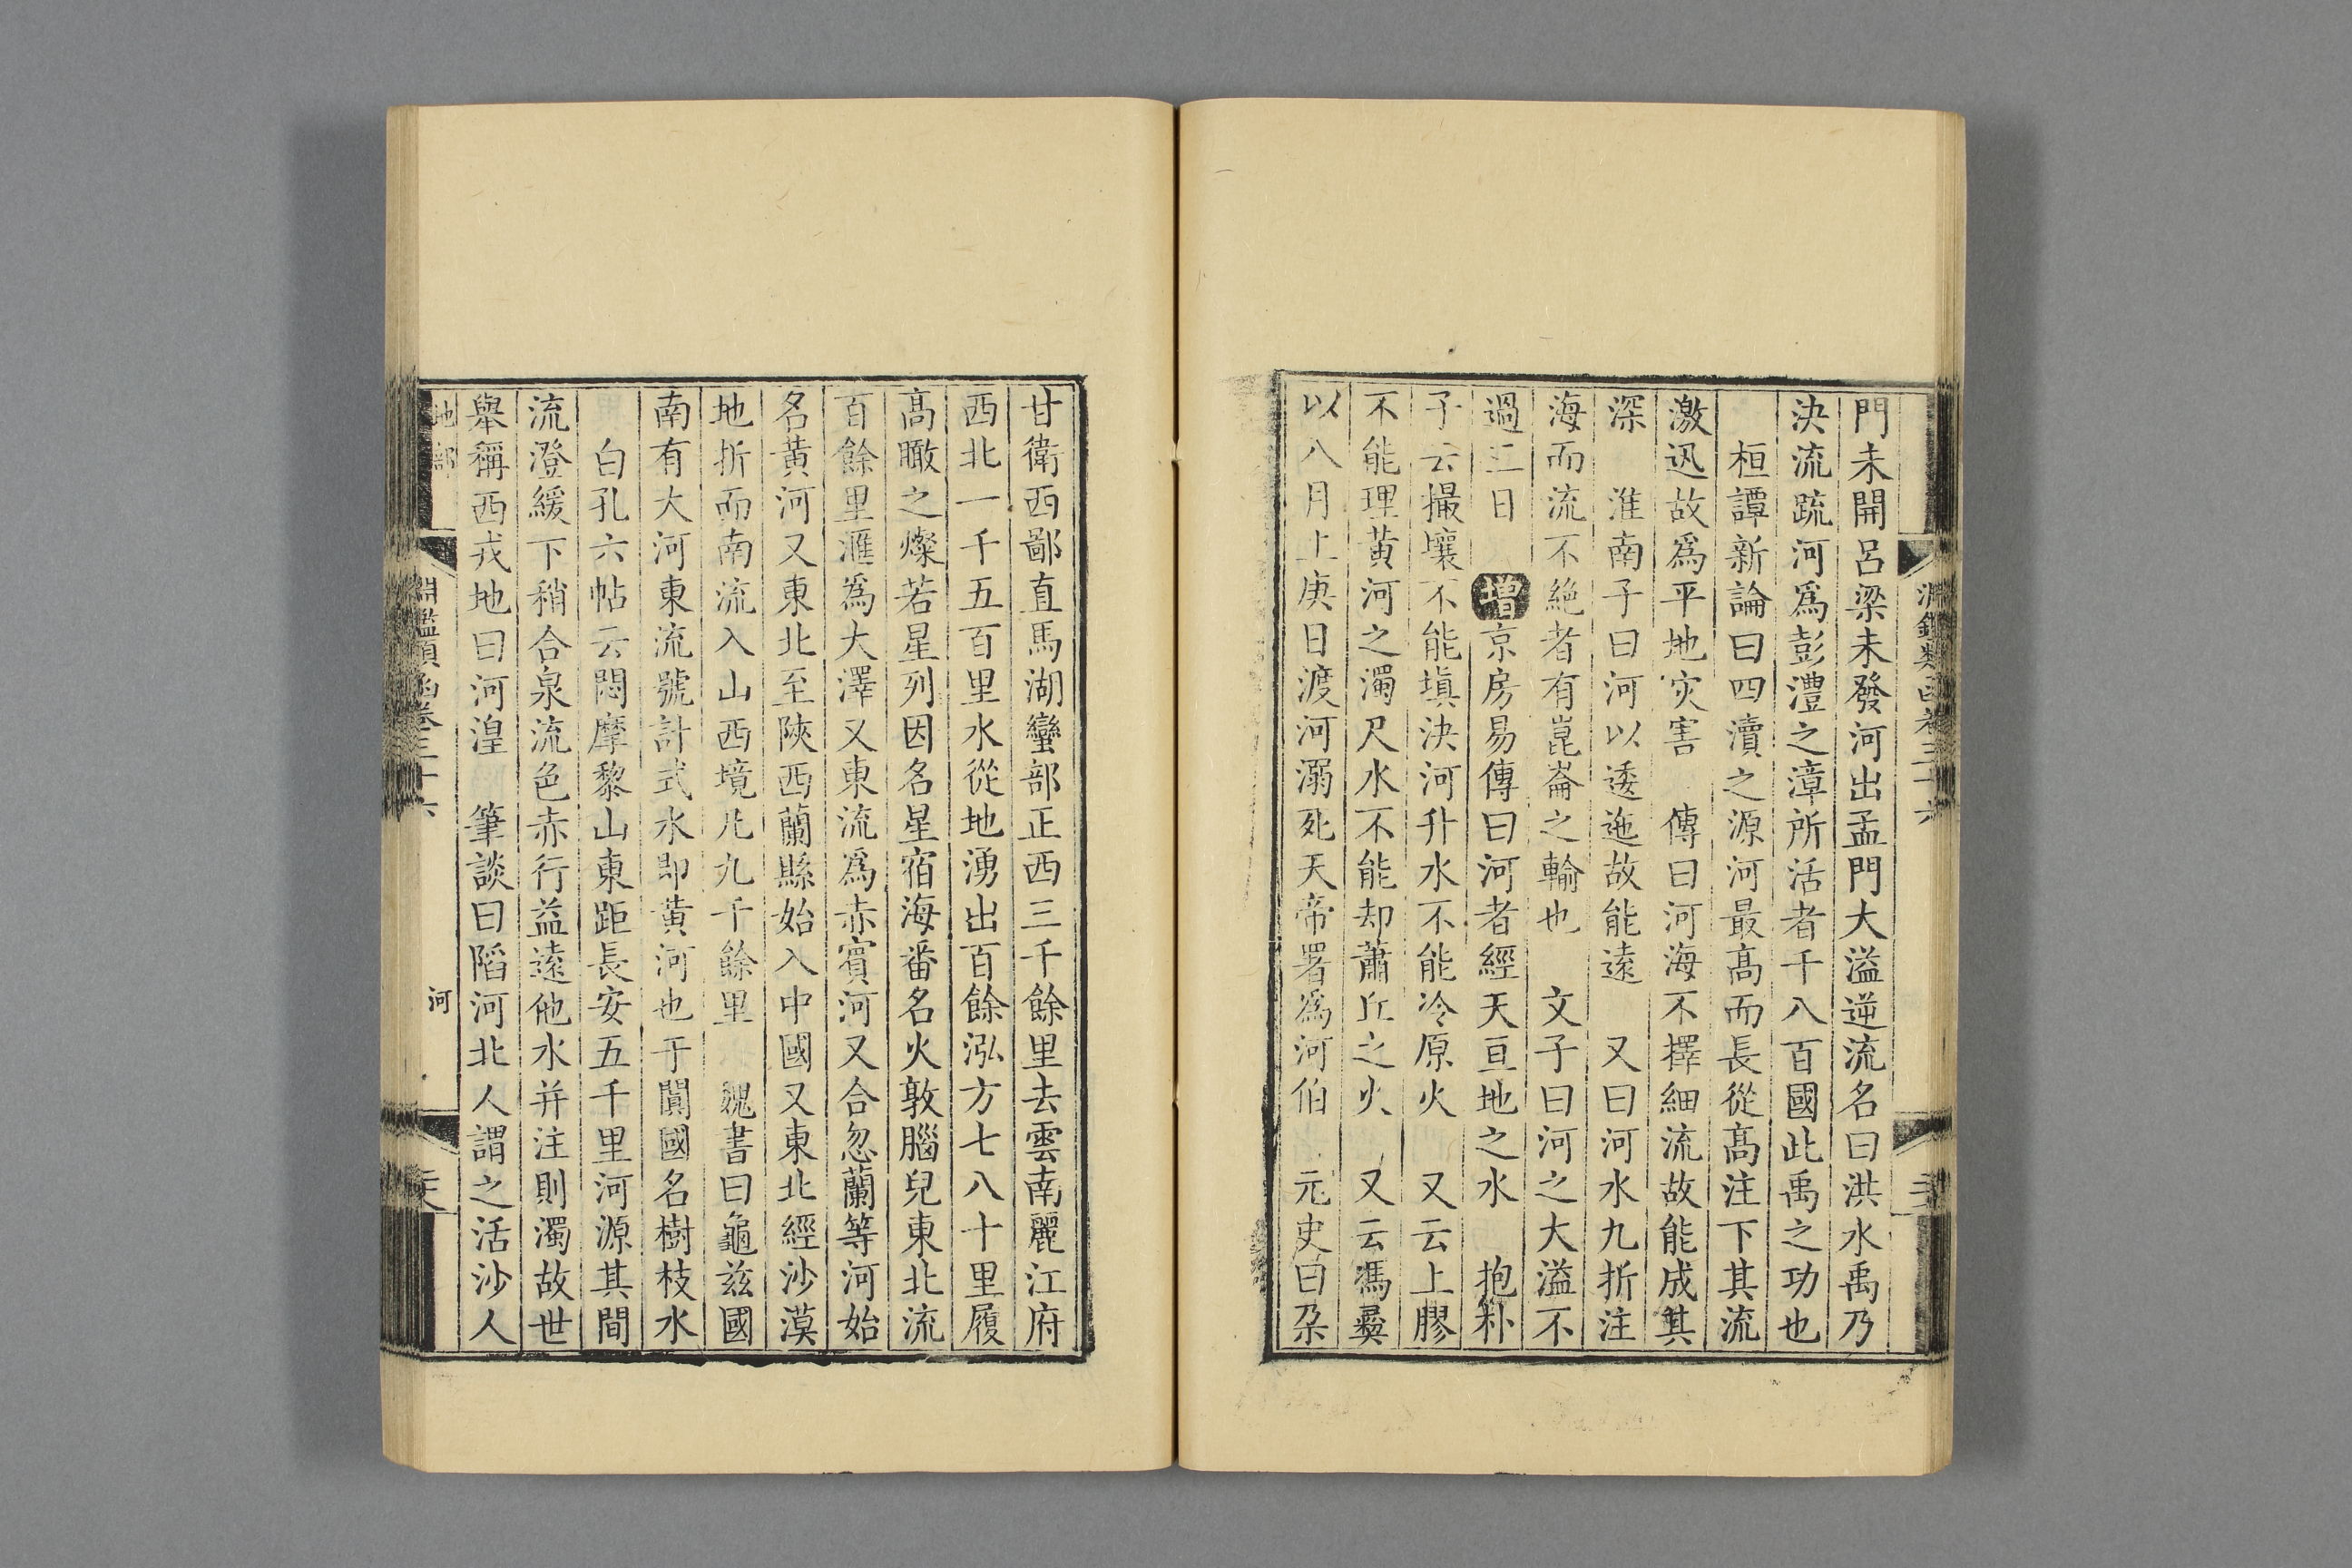 門未開呂梁未發河出孟門大溢逆流名曰洪水禹乃
決流疏河爲彭澧之漳所活者千八百國此禹之功也
桓譚新論曰四瀆之源河最高而長從高注下其流
激迅故爲平地灾害　傳曰河海不擇細流故能成其
深　淮南子曰河以逶迤故能遠　又曰河水九折注
海而流不絕者有崑崙之輸也　文子曰河之大溢不
過三日　增京房易傳曰河者經天亘地之水　抱朴
子云撮壤不能塡決河升水不能冷原火　又云上膠
不能理黃河之濁尺水不能却蕭丘之火　又云馮彝
以八月上庚日渡河溺死天帝署爲河伯　元史曰朶
甘衛西鄙直馬湖蠻部正西三千餘里去雲南麗江府
西北一千五百里水從地湧出百餘泓方七八十里履
高瞰之燦若星列因名星宿海番名火敦腦兒東北流
百餘里滙爲大澤又東流爲赤賓河又合忽蘭等河始
名黃河又東北至陝西蘭縣始入中國又東北經沙漠
地折而南流入山西境凡九千餘里　魏書曰龜兹國
南有大河東流號計式水即黃河也于闐國名樹枝水
白孔六帖云悶摩黎山東距長安五千里河源其間
流澄緩下稍合泉流色赤行益遠他水并注則濁故世
舉稱西戎地曰河湟　筆談曰陷河北人謂之活沙人
地部
淵鑑類函卷三十六
河